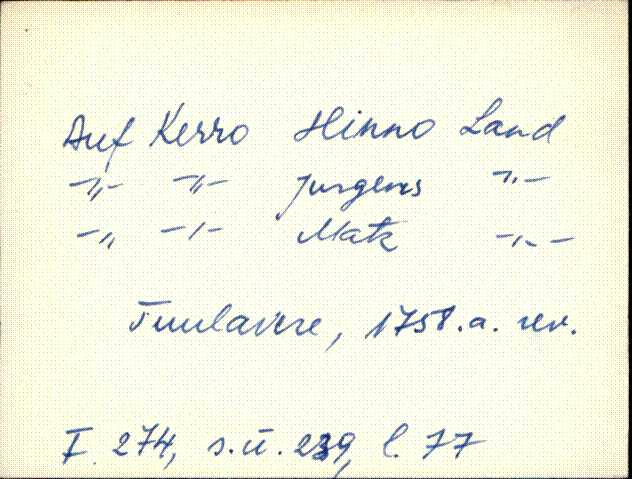 Auf Kerro Hinno Land
-„- -„- Jurgens -„-
-„- -„- Matz -„-
Tuulavere, 1758.a. rev.
F. 274, s.ü. 239, l. 77